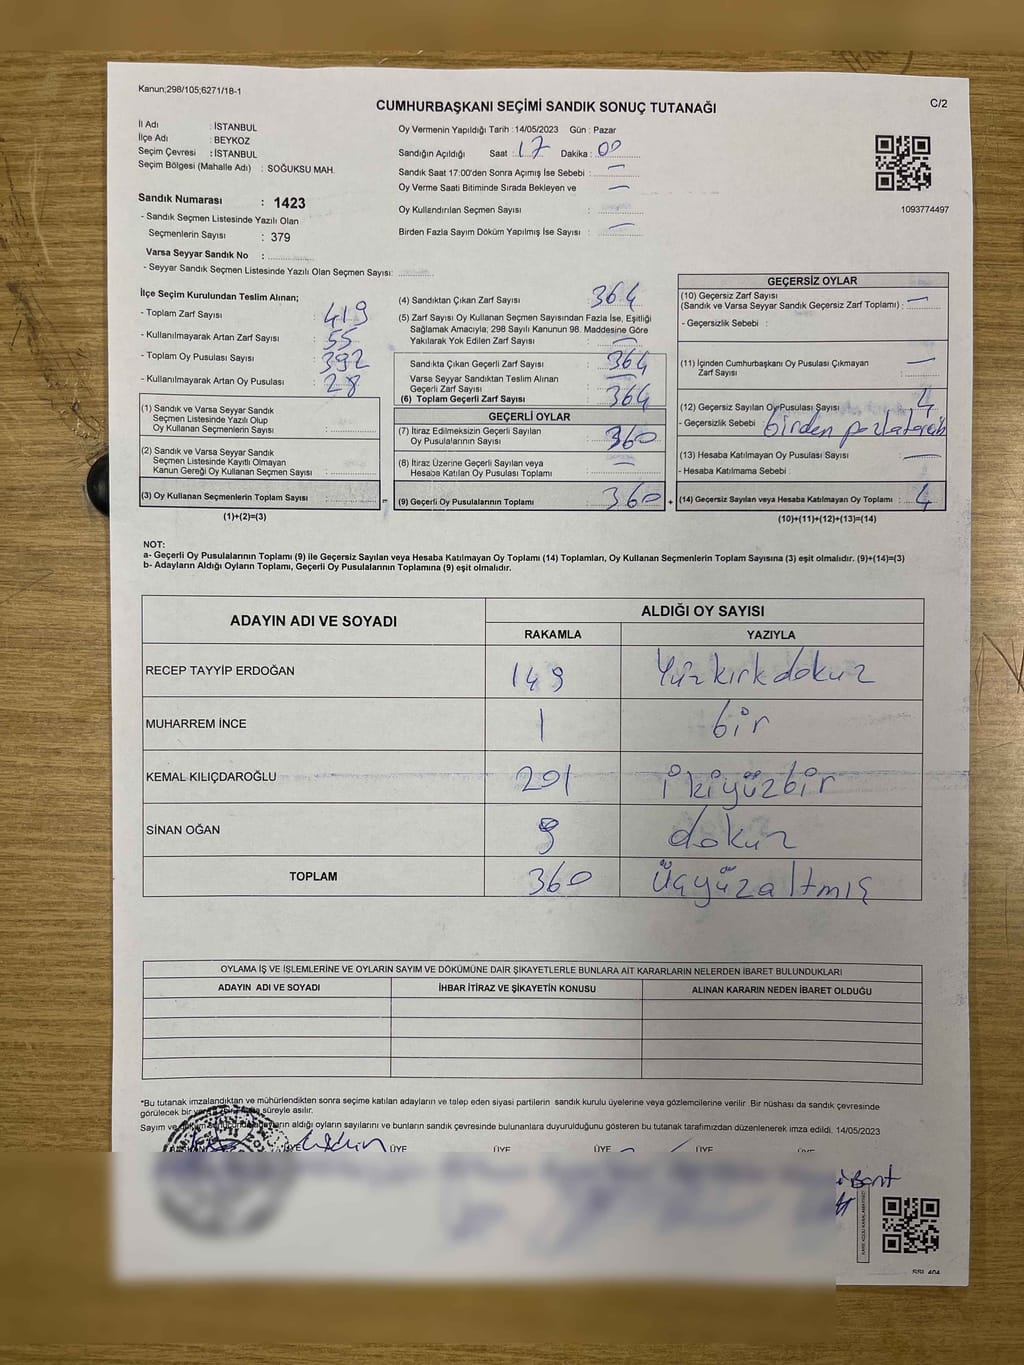 Kanun;298/105;6271/18-1
CUMHURBAŞKANI SEÇİMİ SANDIK SONUÇ TUTANAĞI
C/2
İl Adı : İSTANBUL
İlçe Adı : BEYKOZ
Seçim Çevresi : İSTANBUL
Seçim Bölgesi (Mahalle Adı) : SOĞUKSU MAH.
Oy Vermenin Yapıldığı Tarih : 14/05/2023 Gün : Pazar
Sandığın Açıldığı Saat : 17 Dakika : 00
Sandık Saat 17:00'den Sonra Açımış İse Sebebi : —
Oy Verme Saati Bitiminde Sırada Bekleyen ve —
Oy Kullendırılan Seçmen Sayısı :
Birden Fazla Sayım Döküm Yapılmış İse Sayısı : —
1093774497
Sandık Numarası : 1423
- Sandık Seçmen Listesinde Yazılı Olan
Seçmenlerin Sayısı : 379
Varsa Seyyar Sandık No :
- Seyyar Sandık Seçmen Listesinde Yazılı Olan Seçmen Sayısı:
İlçe Seçim Kurulundan Teslim Alınan;
- Toplam Zarf Sayısı : 419
- Kullanılmayarak Artan Zarf Sayısı : 55
- Toplam Oy Pusulası Sayısı : 392
- Kullanılmayarak Artan Oy Pusulası : 28
(1) Sandık ve Varsa Seyyar Sandık
Seçmen Listesinde Yazılı Olup
Oy Kullanan Seçmenlerin Sayısı :
(2) Sandık ve Varsa Seyyar Sandık
Seçmen Listesinde Kayıtlı Olmayan
Kanun Gereği Oy Kullanan Seçmen Sayısı :
(3) Oy Kullanan Seçmenlerin Toplam Sayısı :
(1)+(2)=(3)
(4) Sandıktan Çıkan Zarf Sayısı : 364
(5) Zarf Sayısı Oy Kullanan Seçmen Sayısından Fazla İse, Eşitliği
Sağlamak Amacıyla; 298 Sayılı Kanunun 98. Maddesine Göre
Yakılarak Yok Edilen Zarf Sayısı : —
Sandıkta Çıkan Geçerli Zarf Sayısı : 364
Varsa Seyyar Sandıktan Teslim Alınan
Geçerli Zarf Sayısı : —
(6) Toplam Geçerli Zarf Sayısı : 364
GEÇERLİ OYLAR
(7) İtiraz Edilmeksizin Geçerli Sayılan
Oy Pusulalarının Sayısı : 360
(8) İtiraz Üzerine Geçerli Sayılan veya
Hesaba Katılan Oy Pusulası Toplamı : —
(9) Geçerli Oy Pusulalarının Toplamı : 360
GEÇERSİZ OYLAR
(10) Geçersiz Zarf Sayısı
(Sandık ve Varsa Seyyar Sandık Geçersiz Zarf Toplamı) : —
- Geçersizlik Sebebi :
(11) İçinden Cumhurbaşkanı Oy Pusulası Çıkmayan —
Zarf Sayısı :
(12) Geçersiz Sayılan Oy Pusulası Sayısı : 4
- Geçersizlik Sebebi : birden fazla tercih
(13) Hesaba Katılmayan Oy Pusulası Sayısı : —
- Hesaba Katılmama Sebebi :
+ (14) Geçersiz Sayılan veya Hesaba Katılmayan Oy Toplamı : 4
(10)+(11)+(12)+(13)=(14)
NOT:
a- Geçerli Oy Pusulalarının Toplamı (9) ile Geçersiz Sayılan veya Hesaba Katılmayan Oy Toplamı (14) Toplamları, Oy Kullanan Seçmenlerin Toplam Sayısına (3) eşit olmalıdır. (9)+(14)=(3)
b- Adayların Aldığı Oyların Toplamı, Geçerli Oy Pusulalarının Toplamına (9) eşit olmalıdır.
ADAYIN ADI VE SOYADI
ALDIĞI OY SAYISI
RAKAMLA YAZIYLA
RECEP TAYYİP ERDOĞAN 149 Yüzkırkdokuz
MUHARREM İNCE 1 bir
KEMAL KILIÇDAROĞLU 201 ikiyüzbir
SİNAN OĞAN 9 dokuz
TOPLAM 360 üçyüzaltmış
OYLAMA İŞ VE İŞLEMLERİNE VE OYLARIN SAYIM VE DÖKÜMÜNE DAİR ŞİKAYETLERLE BUNLARA AİT KARARLARIN NELERDEN İBARET BULUNDUKLARI
ADAYIN ADI VE SOYADI İHBAR İTİRAZ VE ŞİKAYETİN KONUSU ALINAN KARARIN NEDEN İBARET OLDUĞU
*Bu tutanak imzalandıktan ve mühürlendikten sonra seçime katılan adayların ve talep eden siyasi partilerin sandık kurulu üyelerine veya gözlemcilerine verilir. Bir nüshası da sandık çevresinde
görülecek bir süreyle asılır.
Sayım ve aldığı oyların sayılarını ve bunların sandık çevresinde bulunanlara duyurulduğunu gösteren bu tutanak tarafımızdan düzenlenerek imza edildi. 14/05/2023
ÜYE ÜYE ÜYE ÜYE ÜYE